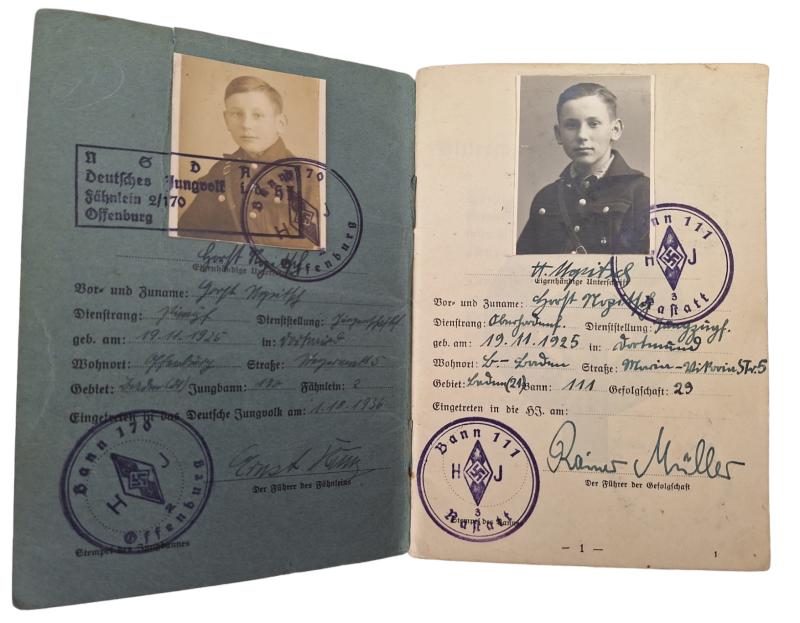 N S D A P
Deutsches Jungvolk i. d. HJ
Fähnlein 2/170
Offenburg
Bann 170
H J
2
Offenburg
Horst
Eigenhändige Unterschrift
Vor- und Zuname: Horst
Dienstrang: Pimpf Dienststellung:
geb. am: 19.11.1925 in: Dortmund
Wohnort: Offenburg Straße:
Gebiet: Baden (21) Jungbann: 170 Fähnlein: 2
Eingetreten in das Deutsche Jungvolk am: 1.10.1936
Ernst
Der Führer des Fähnleins
Bann 170
H J
2
Offenburg
Stempel des Jungbannes
Bann 111
H J
3
Rastatt
H.
Eigenhändige Unterschrift
Vor- und Zuname: Horst
Dienstrang: Dienststellung: Jungzugf.
geb. am: 19.11.1925 in: Dortmund
Wohnort: B.-Baden Straße: Maria-Viktoria Str. 5
Gebiet: Baden (21) Bann: 111 Gefolgschaft: 29
Eingetreten in die HJ. am:
Rainer Müller
Der Führer der Gefolgschaft
Bann 111
H J
3
Rastatt
Stempel des Bannes
— 1 —
1